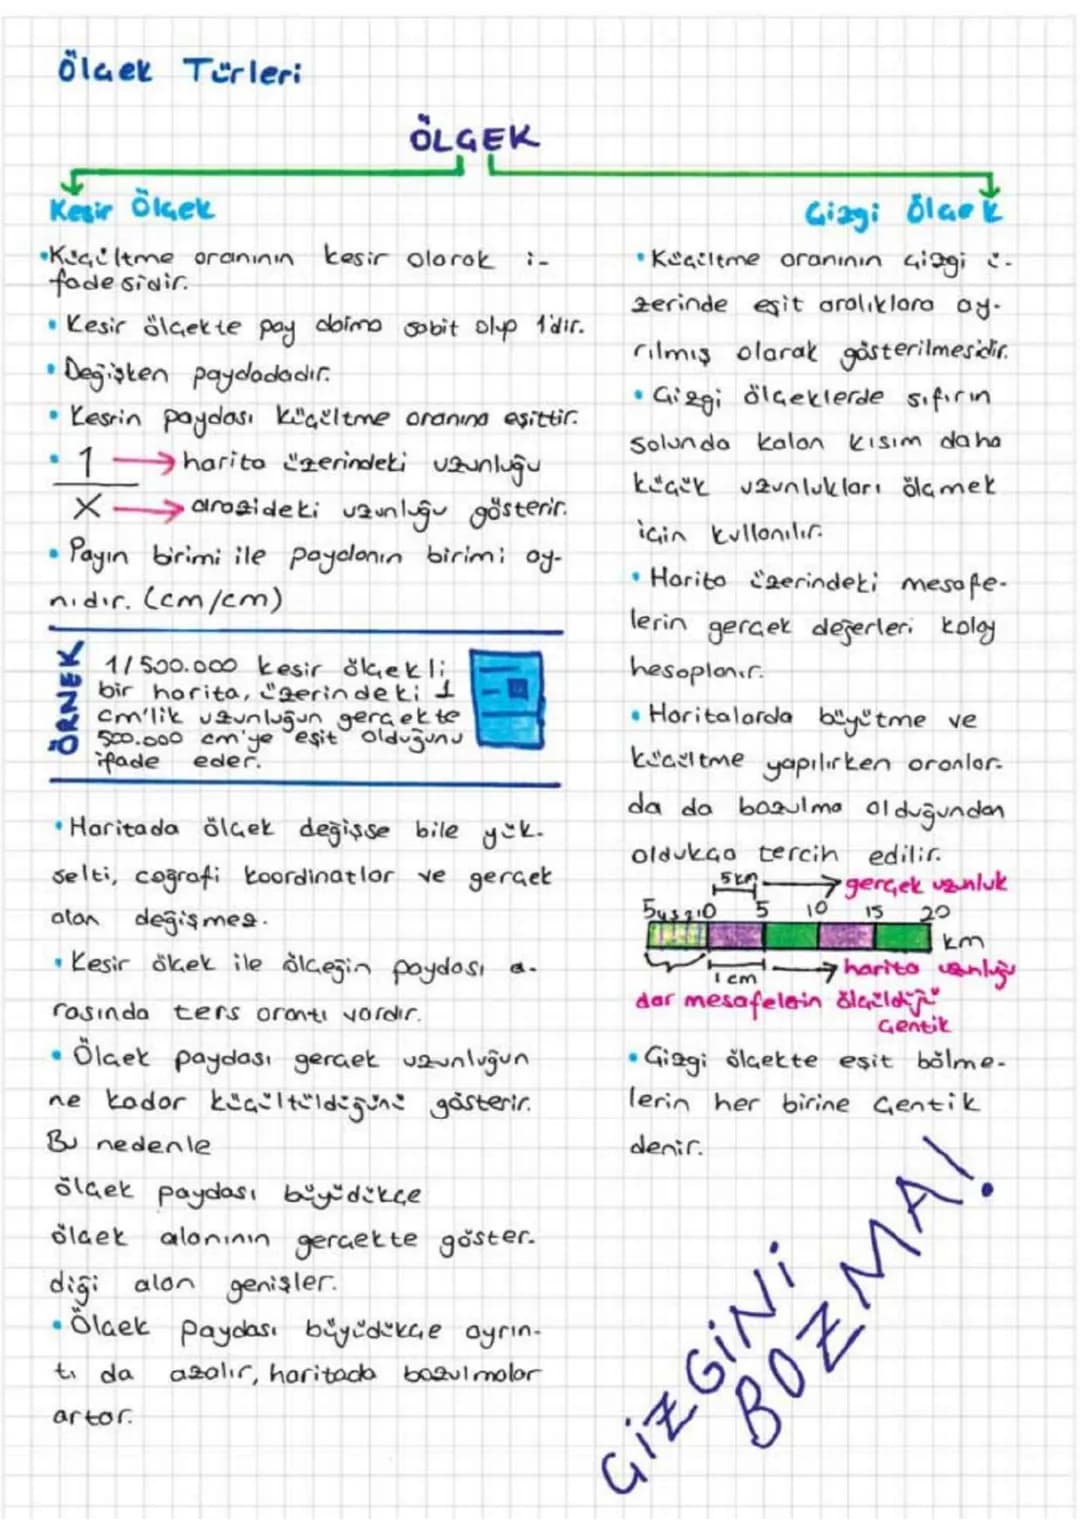 Ölçek Türleri
ÖLÇEK
Kesir Ölçek
•Küçültme oranının kesir olarak i-
fadesidir.
• Kesir ölçekte pay daima sabit olup 1'dir.
• Değişken paydadadır.
• Kesrin paydası küçültme oranına eşittir.
• 1 → harita üzerindeki uzunluğu
X → arazideki uzunluğu gösterir.
• Payın birimi ile paydanın birimi ay-
nıdır. (cm/cm)
ÖRNEK
1/500.000 kesir ölçekli
bir harita, üzerindeki 1
cm'lik uzunluğun gerçekte
500.000 cm'ye eşit olduğunu
ifade eder.
• Haritada ölçek değişse bile yük-
selti, coğrafi koordinatlar ve gerçek
alan değişmez.
• Kesir ölçek ile ölçeğin paydası a-
rasında ters orantı vardır.
• Ölçek paydası gerçek uzunluğun
ne kadar küçültüldüğünü gösterir.
Bu nedenle
ölçek paydası büyüdükçe
ölçek alanının gerçekte göster-
diği alan genişler.
• Ölçek paydası büyüdükçe ayrın-
tı da azalır, haritada bozulmalar
artar.
Çizgi Ölçek
• Küçültme oranının çizgi ü-
zerinde eşit aralıklara ay-
rılmış olarak gösterilmesidir.
• Çizgi ölçeklerde sıfırın
solunda kalan kısım daha
küçük uzunlukları ölçmek
için kullanılır.
• Harita üzerindeki mesafe-
lerin gerçek değerleri kolay
hesaplanır.
• Haritalarda büyütme ve
küçültme yapılırken oranlar-
da da bozulma olduğundan
oldukça tercih edilir.
5km → gerçek uzunluk
5 4 3 2 1 0 5 10 15 20
km
1cm → harita uzunluğu
dar mesafelerin ölçüldüğü
çentik
• Çizgi ölçekte eşit bölme-
lerin her birine çentik
denir.
ÇİZGİNİ
BOZMA!